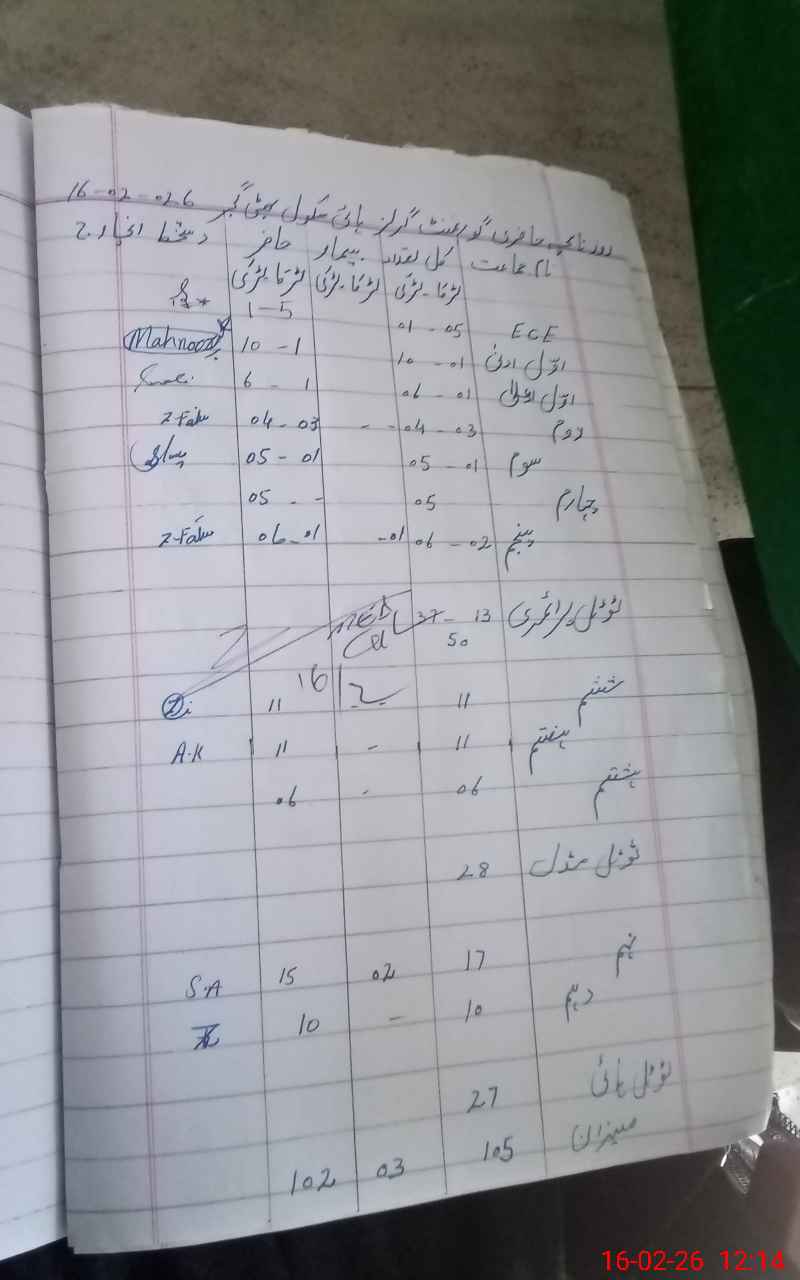 16-02-026
روزنامچہ حاضری گورنمنٹ گرلز ہائی سکول
نام جماعت کل تعداد بیمار حاضر دستخط انچارج
لڑکا - لڑکی لڑکا - لڑکی لڑکا - لڑکی
ECE 01 - 05 1 - 5
اوّل ادنیٰ 10 - 01 10 - 1 Mahnoor
اوّل اعلیٰ 06 - 01 6 - 1
دوم 04 - 03 - - 04 - 03
سوم 05 - 01 05 - 01
چہارم 05 05 - -
پنجم 06 - 02 - 01 06 - 01
ٹوٹل پرائمری 37 - 13
50
ششم 11 11
ہفتم 11 - 11 A.K
ہشتم 06 - 06
ٹوٹل مڈل 28
نہم 17 02 15 S.A
دہم 10 - 10
ٹوٹل ہائی 27
میزان 105 03 102
16-02-26 12:14